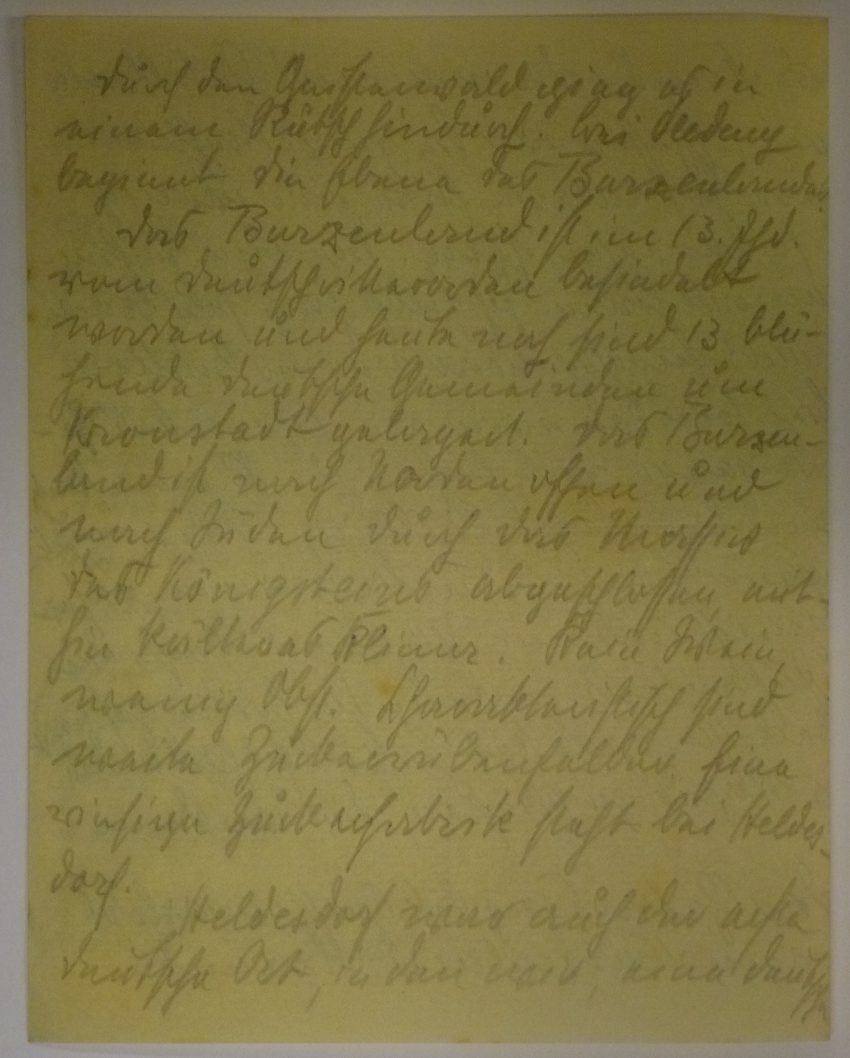 Durch den Geisterwald ging es in
einem Rutsch hindurch. Bei Vledeny
beginnt die Ebene des Burzenlandes.
Das Burzenland ist im 13. Jhd.
vom Deutschritterorden besiedelt
worden und heute noch sind 13 blü-
hende deutsche Gemeinden um
Kronstadt gelagert. Das Burzen-
land ist nach Norden offen und
nach Süden durch das Massiv
des Königsteins abgeschlossen, mit-
hin kälteres Klima. Kein Wein,
wenig Obst. Charakteristisch sind
weite Zuckerrübenfelder. Eine
riesige Zuckerfabrik steht bei Heldes-
dorf.
Heldesdorf war auch der erste
deutsche Ort, in den wir, eine deutsche